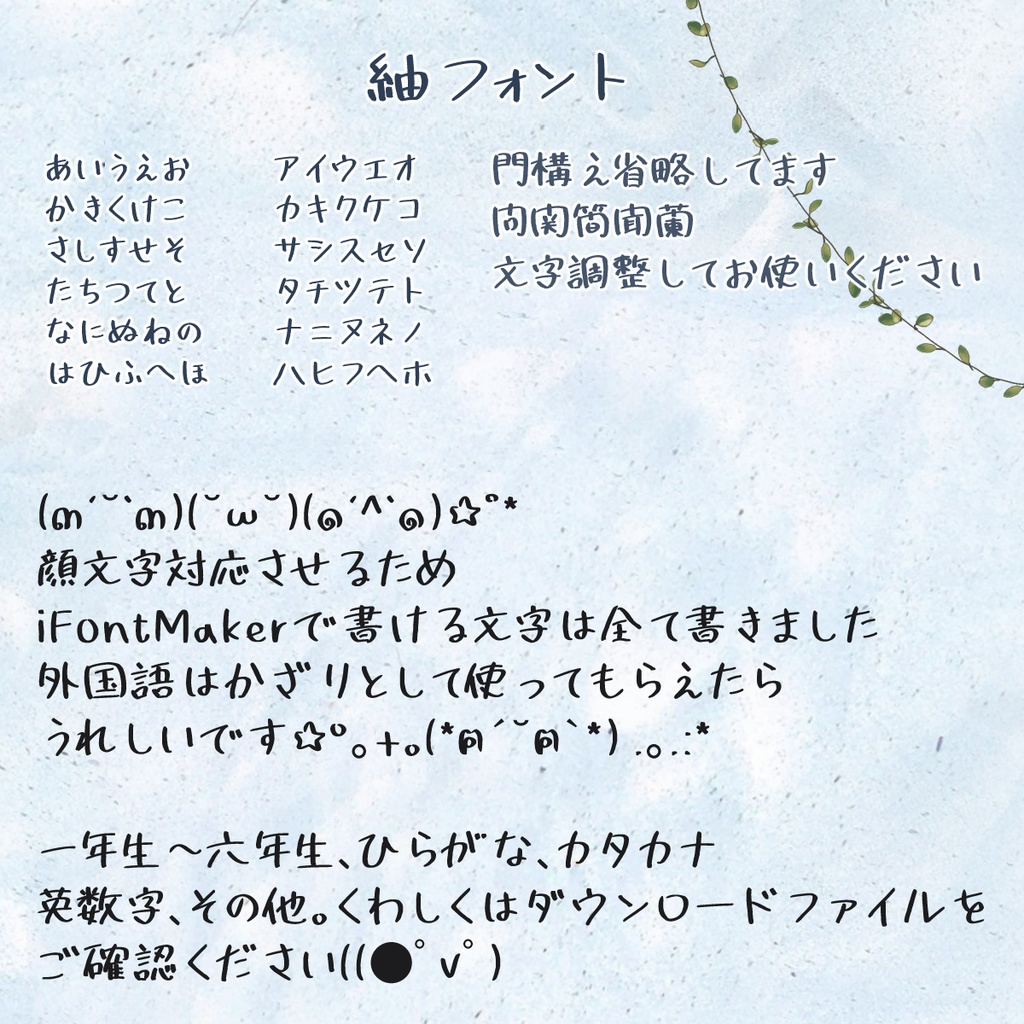 紬フォント
あいうえお
かきくけこ
さしすせそ
たちつてと
なにぬねの
はひふへほ
アイウエオ
カキクケコ
サシスセソ
タチツテト
ナニヌネノ
ハヒフヘホ
門構え省略してます
問関簡聞蘭
文字調整してお使いください
(๓´˘`๓)(˘ω˘)(๑´^`๑)☆°*
顔文字対応させるため
iFontMakerで書ける文字は全て書きました
外国語はかざりとして使ってもらえたら
うれしいです☆º。+。(*ฅ´˘ฅ`*) .。.:*
一年生～六年生、ひらがな、カタカナ
英数字、その他。くわしくはダウンロードファイルを
ご確認ください((●ﾟνﾟ)